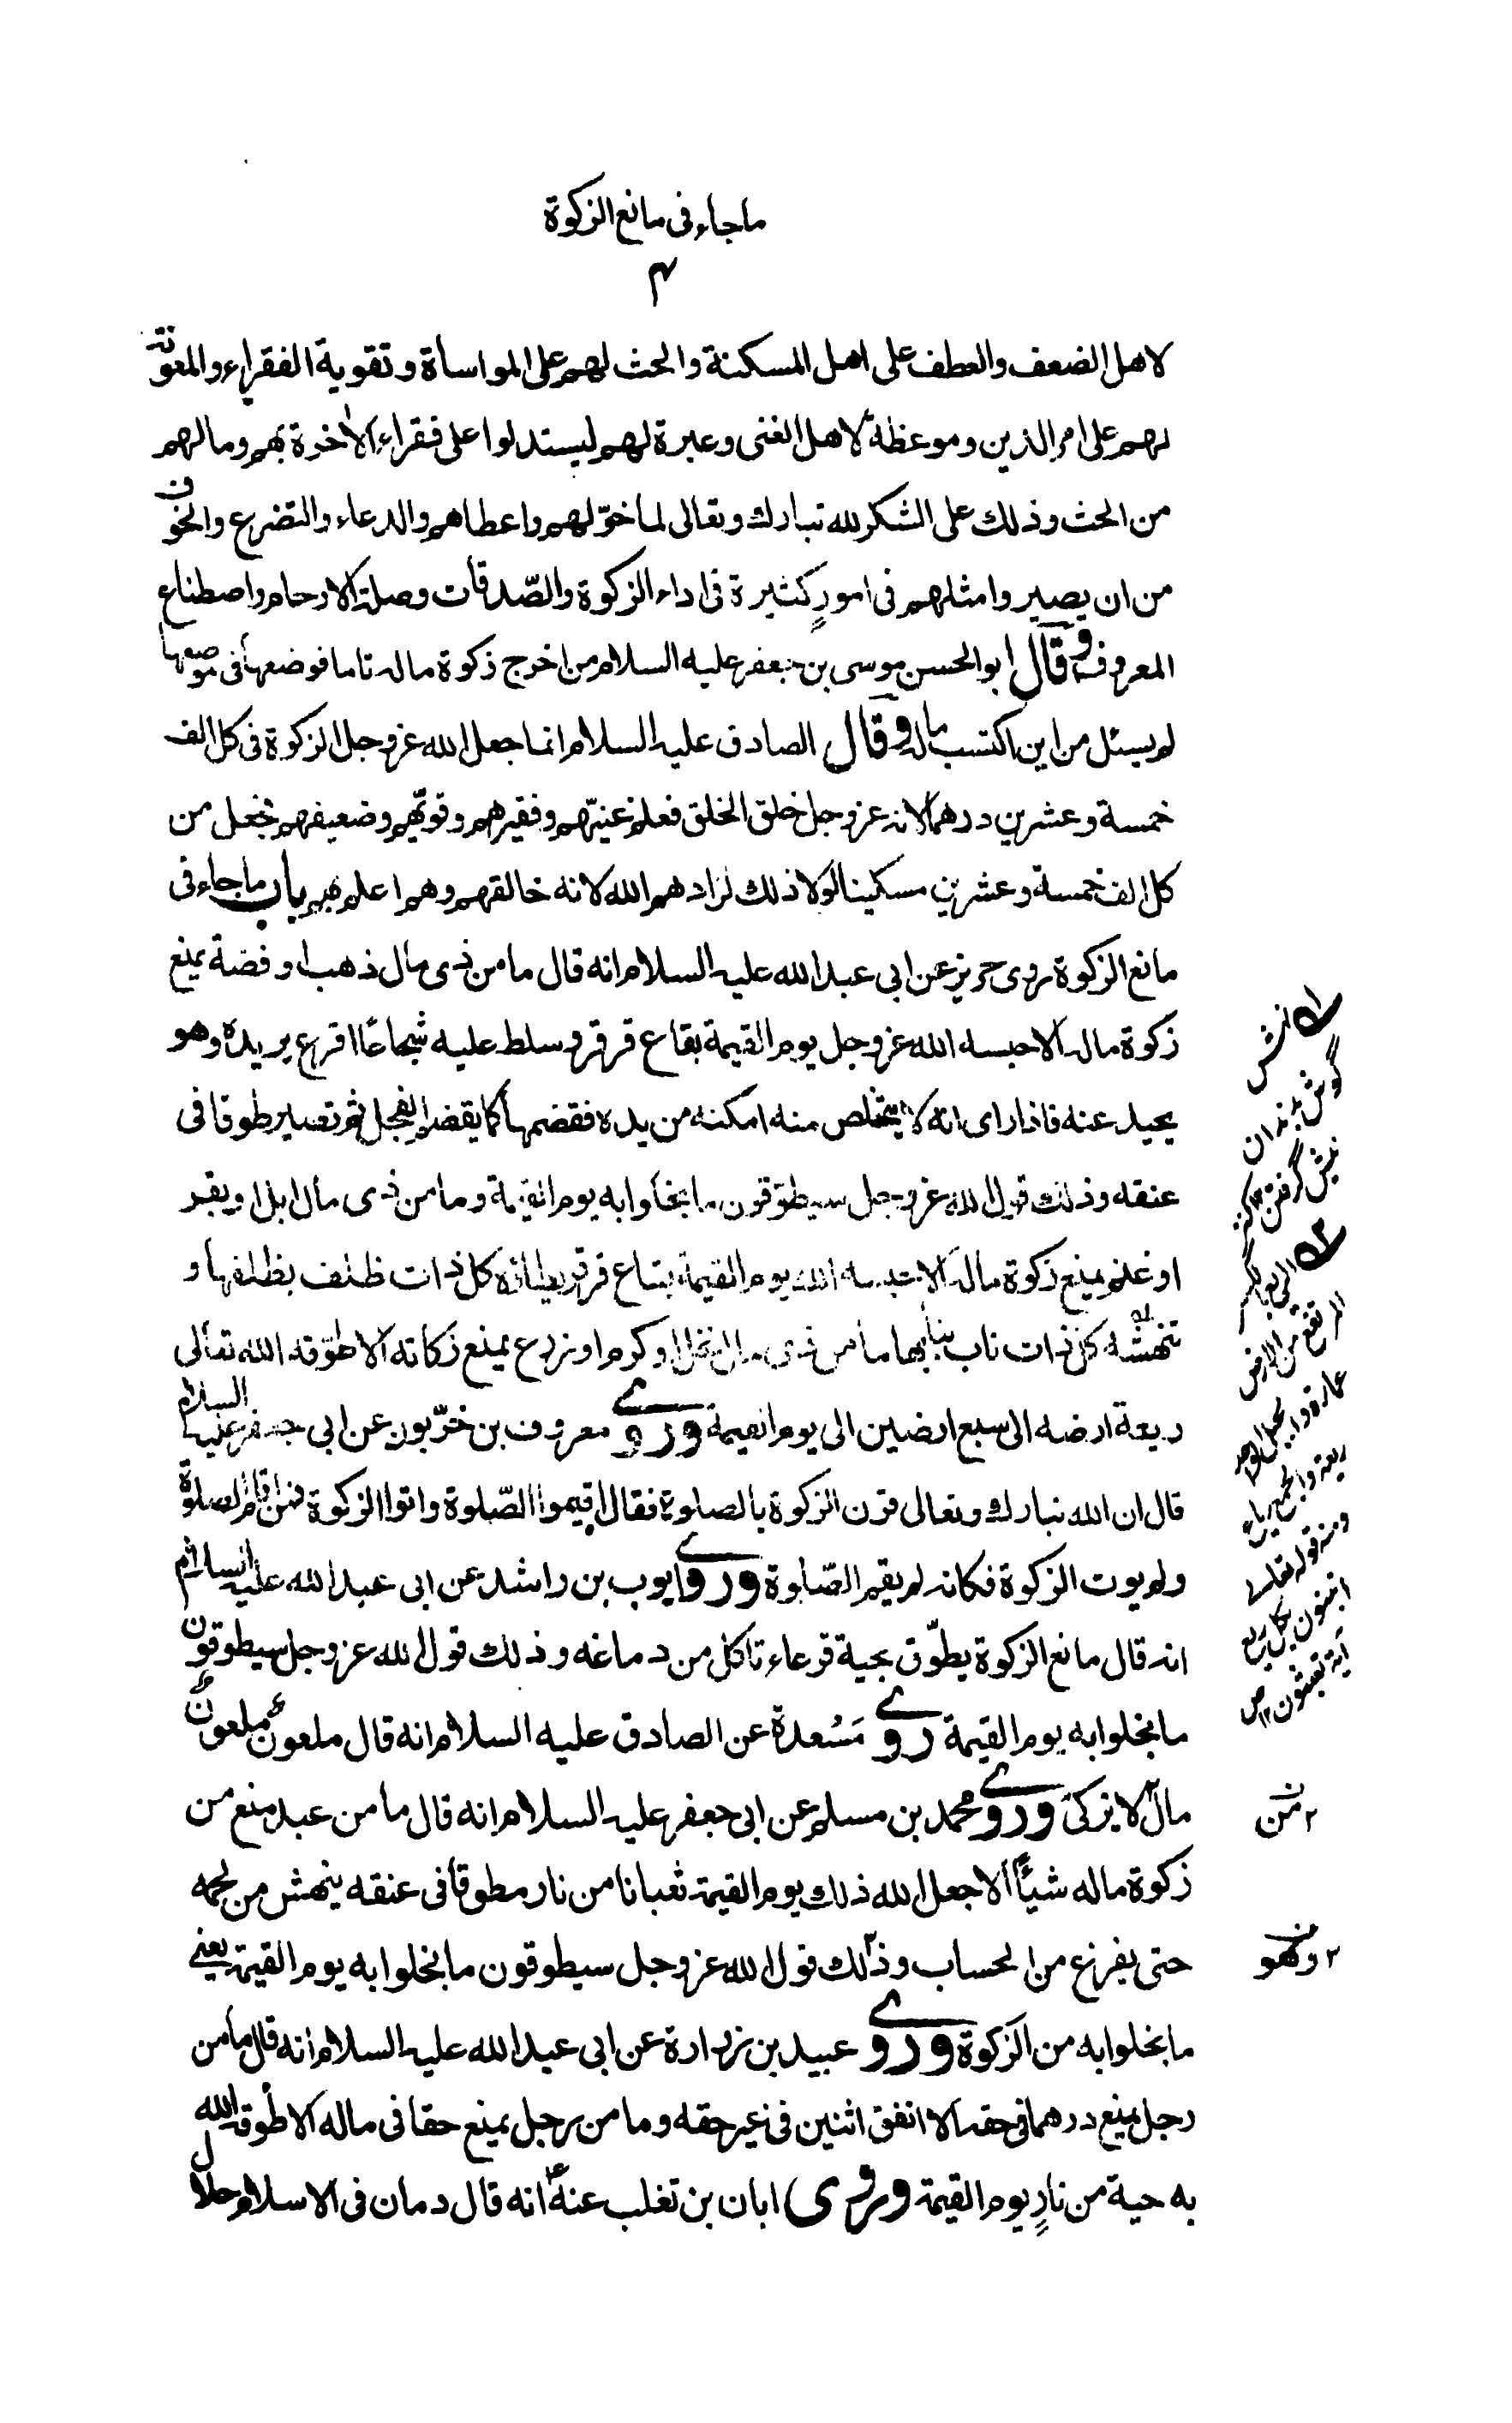 ماجاء فى مانع الزكوة
۴
لاهل الضعف والعطف على اهل المسكنة والحث لهم على المواساة وتقوية الفقراء والمعونة
لهم على امر الدين وموعظة لاهل الغنى وعبرة لهم ليستدلوا على فقراء الاخرة بهم ومالهم
من الحث وذلك على الشكر لله تبارك وتعالى لما خوّلهم واعطاهم والدعاء والتضرع والخوف
من ان يصير وامثلهم فى امورٍ كثيرة فى اداء الزكوة والصّدقات وصلة الارحام واصطناع
المعروف وقال ابوالحسن موسى بن جعفر عليه السلام من اخرج زكوة ماله تاما فوضعها فى موضعها
لم يسئل من اين اكتسب ماله وقال الصادق عليه السلام انما جعل الله عز وجل الزكوة فى كل الف
خمسة وعشرين درهما لانه عز وجل خلق الخلق فعلم غنيّهم وفقيرهم وقويّهم وضعيفهم فجعل من
كل الف خمسة وعشرين مسكينا لولا ذلك لزادهم الله لانه خالقهم وهو اعلم بهم باب ماجاء فى
مانع الزكوة روى حريز عن ابى عبد الله عليه السلام انه قال مامن ذى مال ذهب او فضة يمنع
زكوة ماله الا حبسه الله عز وجل يوم القيمة بقاع قرقر وسلط عليه شجاعًا اقرع يريده وهو
يحيد عنه فاذا راى انه لا يتخلص منه امكنه من يده فقضمها كما يقضم الفجل ثم تصير طوقا فى
عنقه وذلك قول الله عز وجل سيطوّقون مابخلوا به يوم القيمة ومامن ذى مال ابل او بقر
او غنم يمنع زكوة ماله الا حبسه الله يوم القيمة بقاع قرقر يطائه كل ذات ظلف بظلفها و
تنهشه كل ذات ناب بنابها مامن ذى مال نخل او كرم او زرع يمنع زكاته الا طوّقه الله تعالى
ريعة ارضه الى سبع ارضين الى يوم القيمة وروى معروف بن خرّبوز عن ابى جعفر عليه السلام
قال ان الله تبارك وتعالى قرن الزكوة بالصلوة فقال اقيموا الصّلوة واتوا الزكوة فمن اقام الصلوة
ولم يوت الزكوة فكانه لم يقم الصّلوة وروى ايوب بن راشد عن ابى عبد الله عليه السلام
انه قال مانع الزكوة يطوّق بحية قرعاء تاكل من دماغه وذلك قول الله عز وجل سيطوقون
مابخلوا به يوم القيمة روى مَسْعدة عن الصادق عليه السلام انه قال ملعون ملعون
مال لا يزكى وروى محمد بن مسلم عن ابى جعفر عليه السلام انه قال مامن عبد منع من
زكوة ماله شيئًا الا جعل الله ذلك يوم القيمة ثعبانا من نار مطوقا فى عنقه ينهش من لحمه
حتى يفرغ من الحساب وذلك قول الله عز وجل سيطوقون مابخلوا به يوم القيمة يعنى
مابخلوا به من الزكوة وروى عبيد بن زرارة عن ابى عبد الله عليه السلام انه قال مامن
رجل يمنع درهما فى حقه الا انفق اثنين فى غير حقه ومامن رجل يمنع حقا فى ماله الا طوقه الله
به حية من نارٍ يوم القيمة وروى ابان بن تغلب عنه ع انه قال دمان فى الاسلام حلال
النهش
گوش بدندان
پیش گرفتن
الريع بالكسر
المرتفع من الارض
ريعة والجمع رياع
ومنه قوله تعالى
اتبنون بكل ريع
آية تعبثون ۱۲ ص
۲ من
۲ وهو